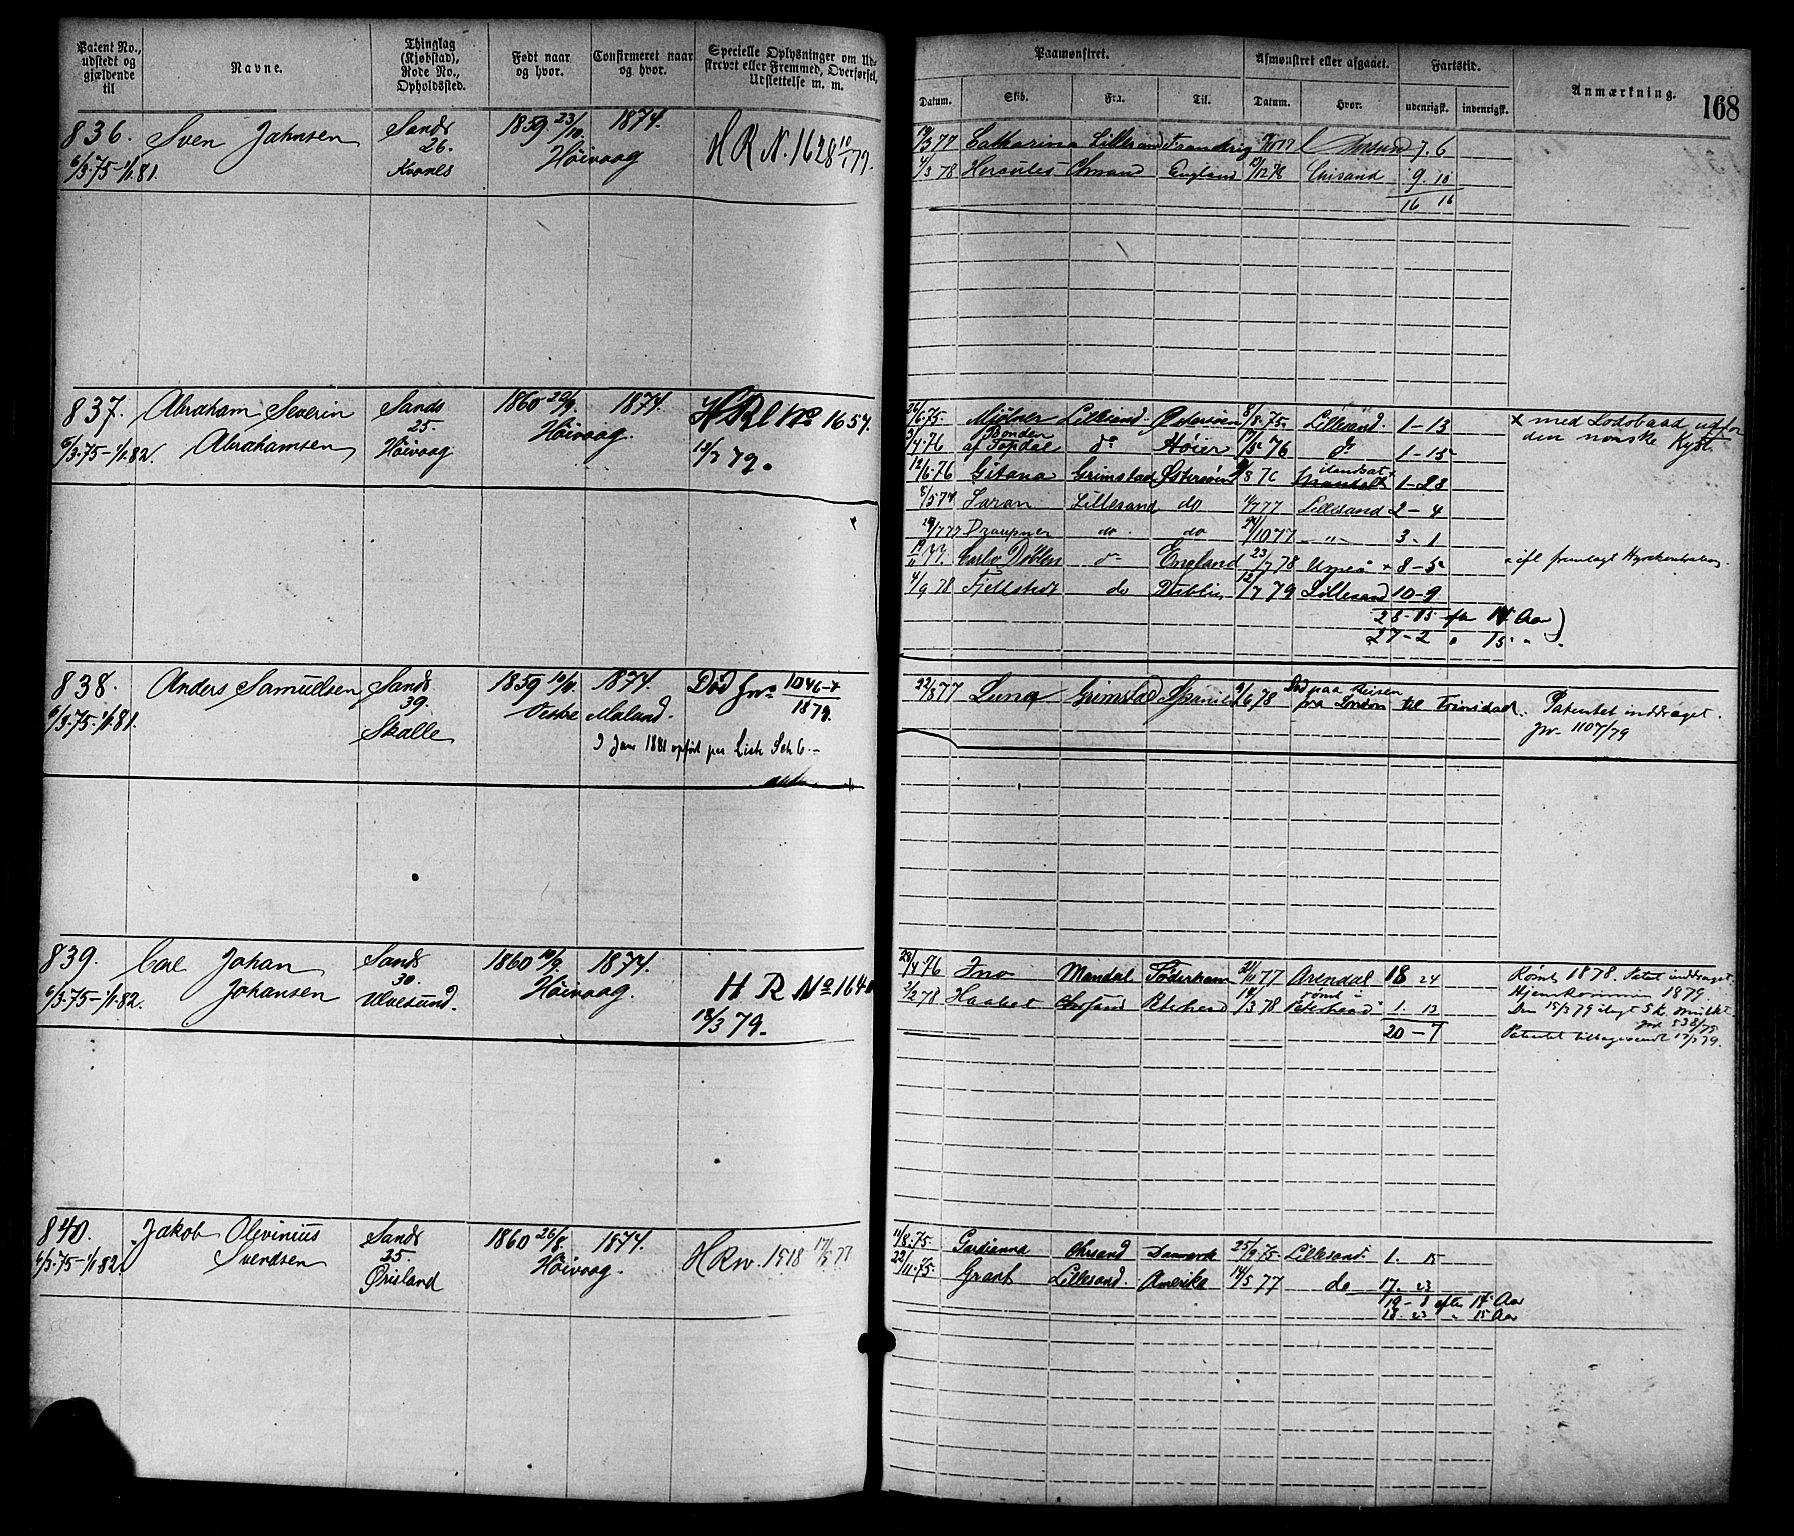 Patent No., udstedt og gjældende til
Navne.
Thinglag (Kjøbstad), Rode No., Opholdssted.
Født naar og hvor.
Confirmeret naar og hvor.
Specielle Oplysninger om Udskrevet eller Fremmed, Overførsel, Udslettelse m. m.
Paamønstret.
Afmønstret eller afgaaet.
Fartstid.
Anmærkning.
168
Datum.
Skib.
Fra.
Til.
Datum.
Hvor.
udenrigsk.
indenrigsk.
836. Sven Jahnsen Sands 1859 23/10. 1874.
26. Høivaag H R N. 1628 10/1 79.
6/3-75-1/1.81. Kvanes
Catharina Lillesand Frankrig 7. 6
4/3 78 Hercules Chrsand England Chrsand 9. 10
16 16
837. Abraham Severin Sands 1860 29/9. 1874. H R No 1657.
25. Høivaag.
6/3-75-1/1.82. Abrahamsen Høivaag 13/3 79.
26/6 75. Mjølner Lillesand. Østersøen 8/8-75. Lillesand. 1-13 x med Lodsbaad udfor
Bonden
4/4 76 af Topdal do Høier 17/5 76 do 1-15 den norske Kyst.
12/6-76 Gitana Grimstad Østersøen 9/8 76 1-28
Saran Lillesand do 777 Lillesand 2-4
Draupner do. do 24/10 77 -"- 3-1
19/11 77. Carl Døblen do England 23/7 78 Umeå x 8-5
4/9 78 Fjellstedt do Dublin 12/7 79 Lillesand 10-9
28-15 efter 14 Aar
27-2 " 15 "
838. Anders Samuelsen Sands 1859 10/11. 1874. Død Jno 1046-7/1879.
39. Vestre Moland.
6/3-75-1/1.81. Skalle
I Jan 1881 opført paa Liste
22/8 77 Luna Grimstad Spanien 9/6 78 Død paa Reisen
fra London til Trinidad. Patentet inddraget.
Jnr. 1107/79
839. Carl Johan Sands 1860 10/9. 1874.
30. Høivaag. H R No 164
6/3-75-1/1.82. Johansen Ulvesund. 18/3 79.
28/4 76 Ino Mandal Söderhamn 21/11 77 Arendal 18 24 Rømt 1878. Patet inddraget.
Hjemkommen 1879.
2/2 78 Haabet Chrsand Peterhead 14/3 78 rømt i Peterhead 1. 13 Den 15/3 79 ilagt 5 K. Mulkt
Jnr 538/79
20-7 Patentet tilbagesendt 17/3 79.
840. Jakob Olevinius Sands 1860 26/8. 1874.
25. Høivaag. H R N. 1518 17/5 77
6/3-75-1/1.82. Svendsen Ørisland
14/8.75. Chrsand Danmark 25/9 75 Lillesand 1. 15
22/11.75 Grant Lillesand. Amerika 14/5 77 do 17. 23
19-8 efter 14 Aar
18. 23 " 15 Aar